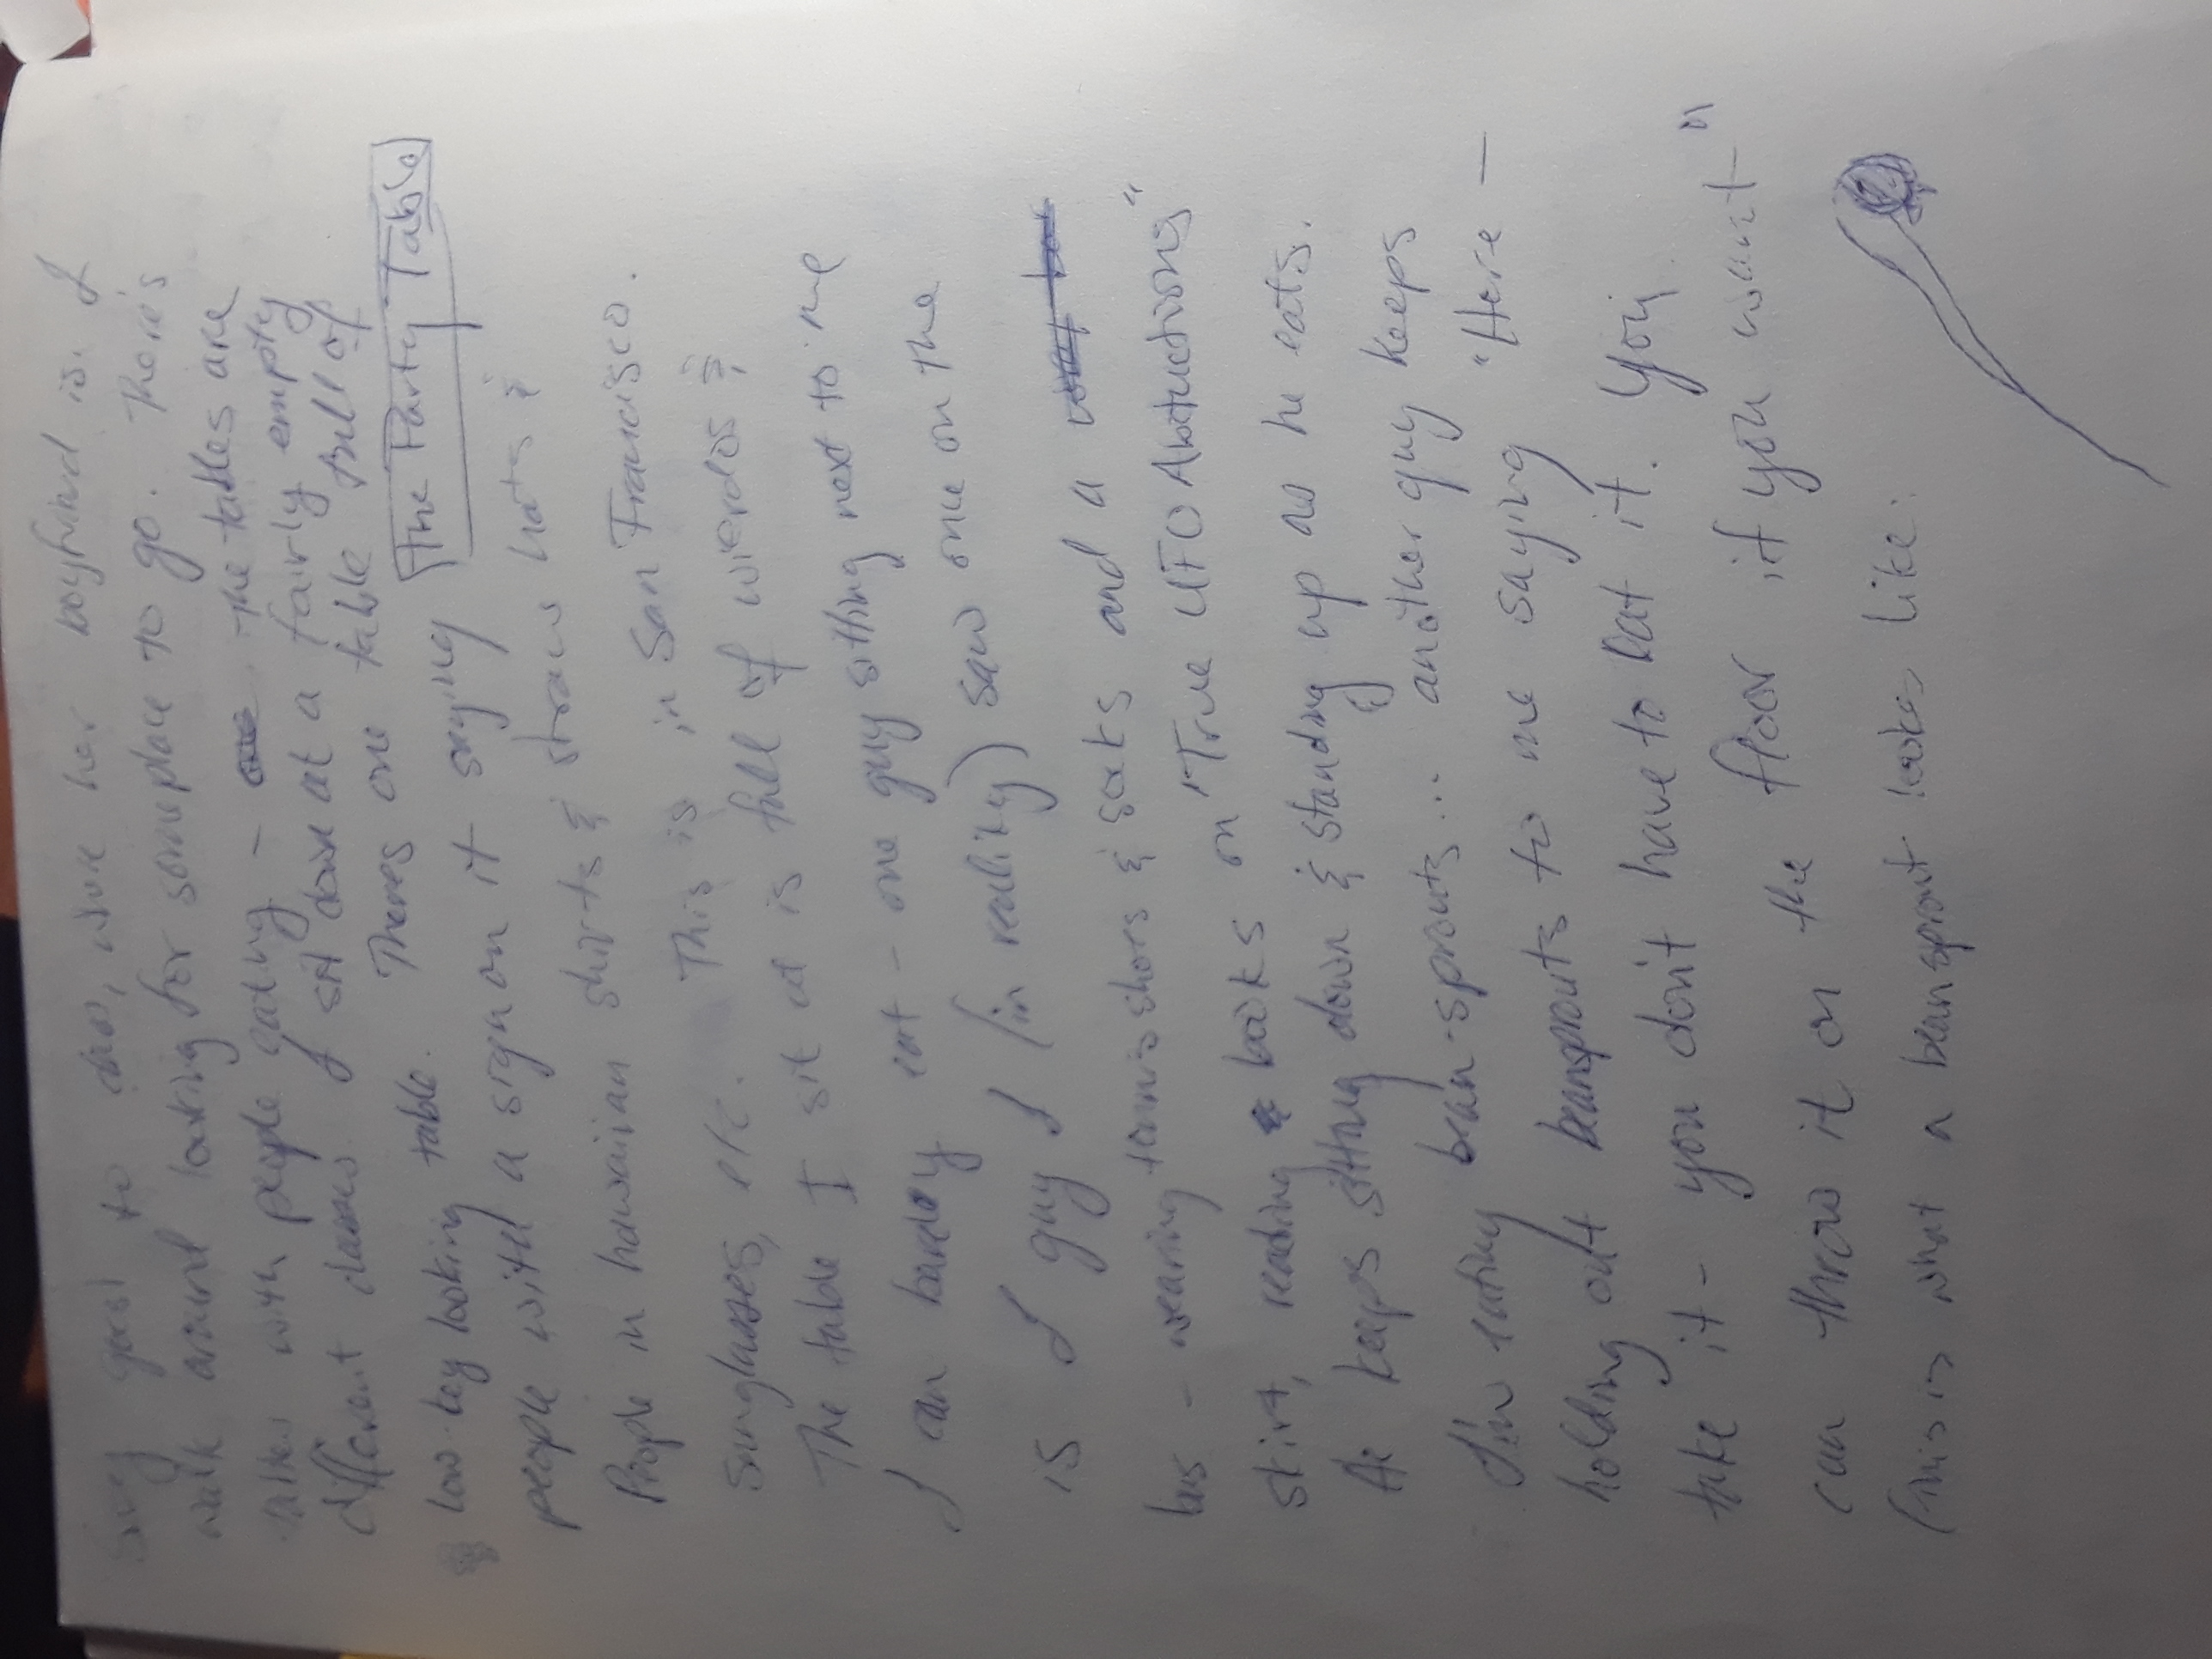 goes to where her boyfriend is. I
walk around looking for someplace to go. There's
tables with people eating - the tables are
different classes. I sit down at a fairly empty
low-key looking table. Theres one table full of
people with a sign on it saying The Party Table
People in hawaiian shirts & straw hats &
Sunglasses, etc. This is in San Francisco.
The table I sit at is full of wierdos &
I can barely eat - one guy sitting next to me
is a guy I (in reality) saw one on the
bus - wearing tennis shoes & socks and a
skirt, reading books on "True UFO Abductions"
He keeps sitting down & standing up as he eats.
I'm eating bean-sprouts... another guy keeps
holding out beansprouts to me saying "Here -
take it - you don't have to eat it. You
can throw it on the floor if you want"
(this is what a beansprout looks like: